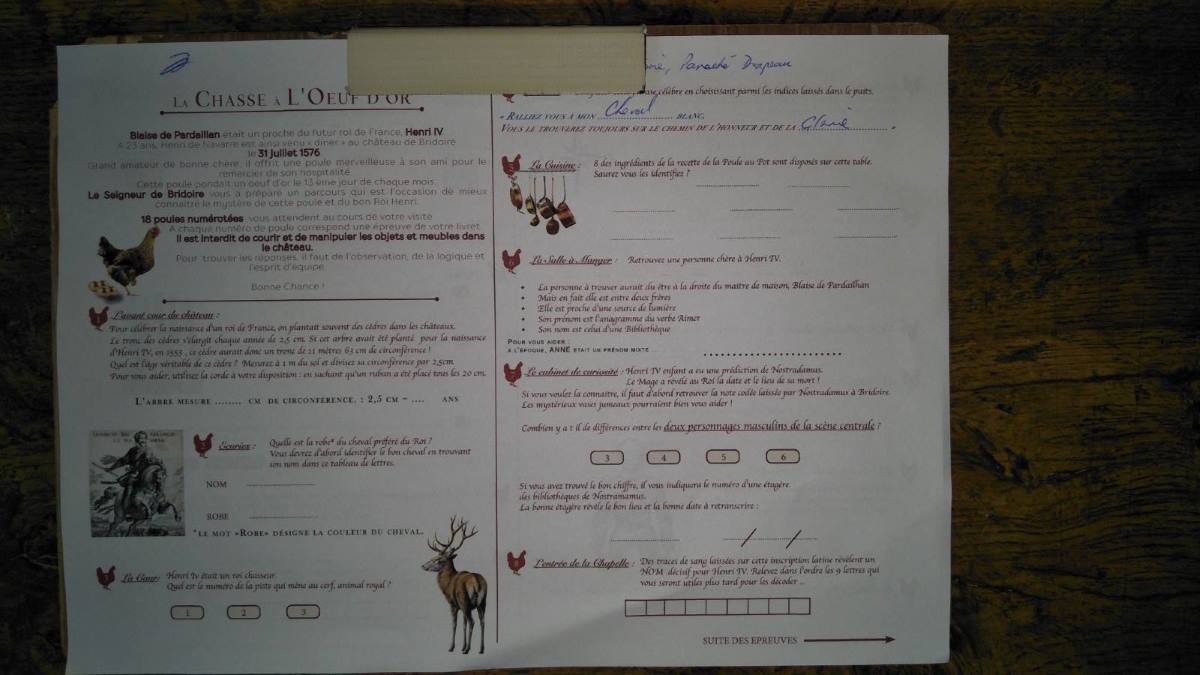 LA CHASSE À L'OEUF D'OR
Blaise de Pardaillan était un proche du futur roi de France, Henri IV.
A 23 ans, Henri de Navarre est ainsi venu « diner » au château de Bridoire
le 31 juillet 1576
Grand amateur de bonne chère, il offrit une poule merveilleuse à son ami pour le
remercier de son hospitalité.
Cette poule pondait un oeuf d'or le 13 ème jour de chaque mois.
Le Seigneur de Bridoire vous a préparé un parcours qui est l'occasion de mieux
connaitre le mystère de cette poule et du bon Roi Henri.
18 poules numérotées vous attendent au cours de votre visite
A chaque numéro de poule correspond une épreuve de votre livret.
Il est interdit de courir et de manipuler les objets et meubles dans
le château.
Pour trouver les réponses, il faut de l'observation, de la logique et
l'esprit d'équipe
Bonne Chance !
1 L'avant cour du château :
Pour célébrer la naissance d'un roi de France, on plantait souvent des cèdres dans les châteaux.
Le tronc des cèdres s'élargit chaque année de 2,5 cm. Si cet arbre avait été planté pour la naissance
d'Henri IV, en 1553, ce cèdre aurait donc un tronc de 11 mètres 63 cm de circonférence !
Quel est l'âge véritable de ce cèdre ? Mesurez à 1 m du sol et divisez sa circonférence par 2,5cm.
Pour vous aider, utilisez la corde à votre disposition : en sachant qu'un ruban a été placé tous les 20 cm.
L'ARBRE MESURE ........ CM DE CIRCONFÉRENCE. : 2,5 CM = .... ANS
2 Ecuries : Quelle est la robe* du cheval préféré du Roi ?
Vous devrez d'abord identifier le bon cheval en trouvant
son nom dans ce tableau de lettres.
NOM
ROBE
*LE MOT «ROBE» DÉSIGNE LA COULEUR DU CHEVAL.
La Cour: Henri Iv était un roi chasseur.
Quel est le numéro de la piste qui mène au cerf, animal royal ?
1 2 3
Panaché Drapeau
célèbre en choisissant parmi les indices laissés dans le puits.
« RALLIEZ VOUS À MON Cheval BLANC,
VOUS LE TROUVEREZ TOUJOURS SUR LE CHEMIN DE L'HONNEUR ET DE LA Gloire »
La Cuisine : 8 des ingrédients de la recette de la Poule au Pot sont disposés sur cette table.
Saurez vous les identifiez ?
6 La Salle à Manger : Retrouvez une personne chère à Henri IV.
• La personne à trouver aurait du être à la droite du maitre de maison, Blaise de Pardailhan
• Mais en fait elle est entre deux frères
• Elle est proche d'une source de lumière
• Son prénom est l'anagramme du verbe Rimer
• Son nom est celui d'une Bibliothèque
POUR VOUS AIDER :
A L'ÉPOQUE, ANNE ETAIT UN PRÉNOM MIXTE ...
Le cabinet de curiosité : Henri IV enfant a eu une prédiction de Nostradamus.
Le Mage a révélé au Roi la date et le lieu de sa mort !
Si vous voulez la connaitre, il faut d'abord retrouver la note codée laissée par Nostradamus à Bridoire.
Les mystérieux vases jumeaux pourraient bien vous aider !
Combien y a t il de différences entre les deux personnages masculins de la scène centrale ?
3 4 5 6
Si vous avez trouvé le bon chiffre, il vous indiquera le numéro d'une étagère
des bibliothèques de Nostramamus.
La bonne étagère révèle le bon lieu et la bonne date à retranscrire :
/ /
L'entrée de la Chapelle : Des traces de sang laissées sur cette inscription latine révèlent un
NOM décisif pour Henri IV. Relevez dans l'ordre les 9 lettres qui
vous seront utiles plus tard pour les décoder ...
SUITE DES EPREUVES